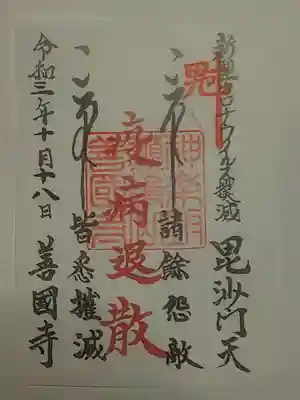 新型コロナウイルス撲滅 毘沙門天
諸餘怨敵
疫病退散
皆悉摧滅
令和三年十月十八日 善國寺